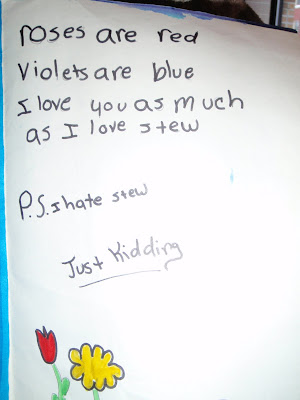 roses are red
Violets are blue
I love you as much
as I love stew
P.S. I hate stew
Just Kidding